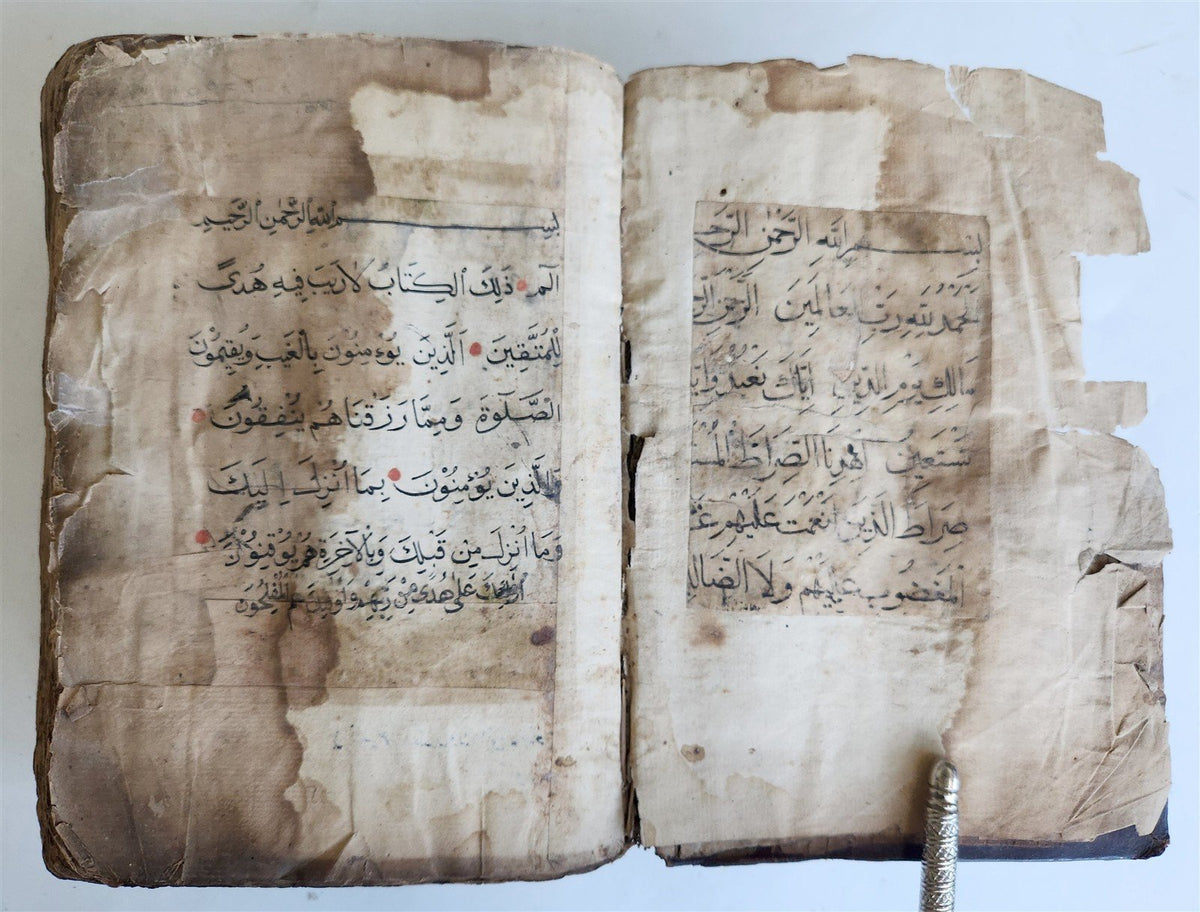 بِسْمِ اللهِ الرَّحْمٰنِ الرَّحِ
اَلْحَمْدُ لِلّٰهِ رَبِّ الْعَالَمِينَ الرَّحْمٰنِ الرَّ
مَالِكِ يَوْمِ الدِّينِ اِيَّاكَ نَعْبُدُ وَاِيَّا
نَسْتَعِينُ اِهْدِنَا الصِّرَاطَ الْمُسْتَ
صِرَاطَ الَّذِينَ اَنْعَمْتَ عَلَيْهِمْ غَ
الْمَغْضُوبِ عَلَيْهِمْ وَلَا الضَّالِّ
بِسْمِ اللهِ الرَّحْمٰنِ الرَّحِيمِ
الٓمٓ ذَلِكَ الْكِتَابُ لَارَيْبَ فِيهِ هُدًى
لِلْمُتَّقِينَ اَلَّذِينَ يُوْءمِنُونَ بِالْغَيْبِ وَيُقِيمُونَ
الْصَّلٰوةَ وَمِمَّا رَزَقْنَاهُمْ يُنْفِقُونَ
وَالَّذِينَ يُوْءمِنُوْنَ بِمَا اُنْزِلَ اِلَيْكَ
وَمَا اُنْزِلَ مِنْ قَبْلِكَ وَبِالْآخِرَةِ هُمْ يُوْقِنُوْنَ
اُولٰئِكَ عَلٰى هُدًى مِنْ رَبِّهِمْ وَاُولٰئِكَ هُمُ الْمُفْلِحُونَ